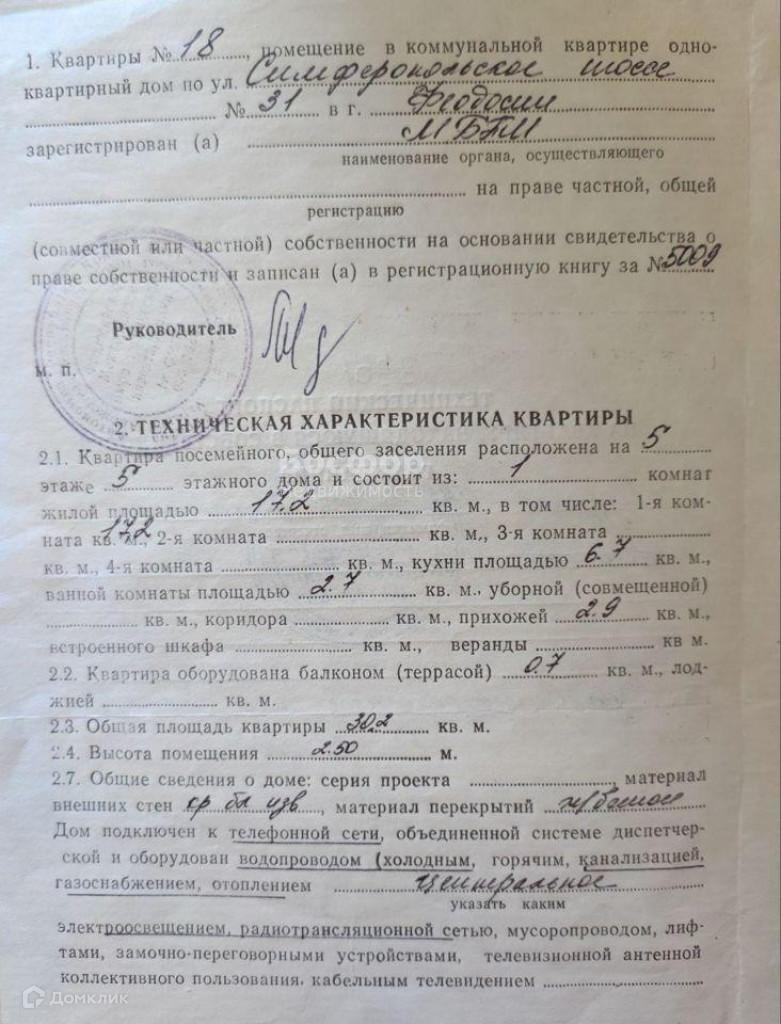 1. Квартиры № 18, помещение в коммунальной квартире одно-
квартирный дом по ул. Симферопольское шоссе
№ 31 в г. Феодосии
зарегистрирован (а) МБТИ
наименование органа, осуществляющего
на праве частной, общей
регистрацию
(совместной или частной) собственности на основании свидетельства о
праве собственности и записан (а) в регистрационную книгу за № 5009
Руководитель
м. п.
2. ТЕХНИЧЕСКАЯ ХАРАКТЕРИСТИКА КВАРТИРЫ
2.1. Квартира посемейного, общего заселения расположена на 5
этаже 5 этажного дома и состоит из: 1 комнат
жилой площадью 17.2 кв. м., в том числе: 1-я ком-
ната кв. 17.2 м., 2-я комната кв. м., 3-я комната
кв. м., 4-я комната кв. м., кухни площадью 6.7 кв. м.,
ванной комнаты площадью 2.7 кв. м., уборной (совмещенной)
кв. м., коридора кв. м., прихожей 2.9 кв. м.,
встроенного шкафа кв. м., веранды кв м.
2.2. Квартира оборудована балконом (террасой) 0.7 кв. м., лод-
жией кв. м.
2.3. Общая площадь квартиры 30.2 кв. м.
2.4. Высота помещения 2.50 м.
2.7. Общие сведения о доме: серия проекта , материал
внешних стен кр бл изв, материал перекрытий ж/бетон
Дом подключен к телефонной сети, объединенной системе диспетчер-
ской и оборудован водопроводом (холодным, горячим, канализацией,
газоснабжением, отоплением центральное
указать каким
электроосвещением, радиотрансляционной сетью, мусоропроводом, лиф-
тами, замочно-переговорными устройствами, телевизионной антенной
коллективного пользования. кабельным телевидением
Домклик